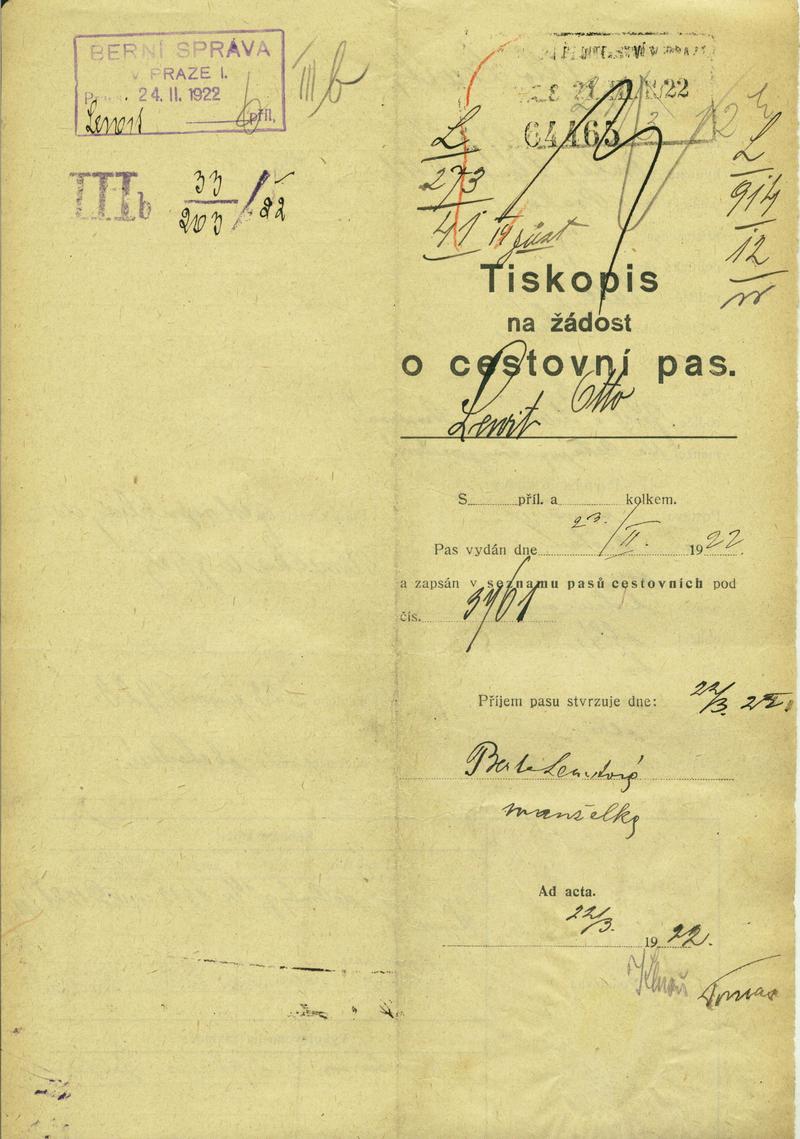 BERNÍ SPRÁVA
V PRAZE I.
24. II. 1922
Lewit příl.
III b
IIIb 33/203/22
22
64465
L
273
41
L
914
12
Tiskopis
na žádost
o cestovní pas.
Lewit Otto
S příl. a kolkem.
Pas vydán dne 23./II. 1922.
a zapsán v seznamu pasů cestovních pod
čís. 3761
Příjem pasu stvrzuje dne: 22/3. 22.
Berta Lewitová
manželka
Ad acta.
22/3. 1922.
Tomas